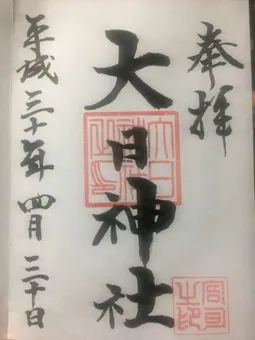 奉拝
大日神社
平成三十年四月三十日